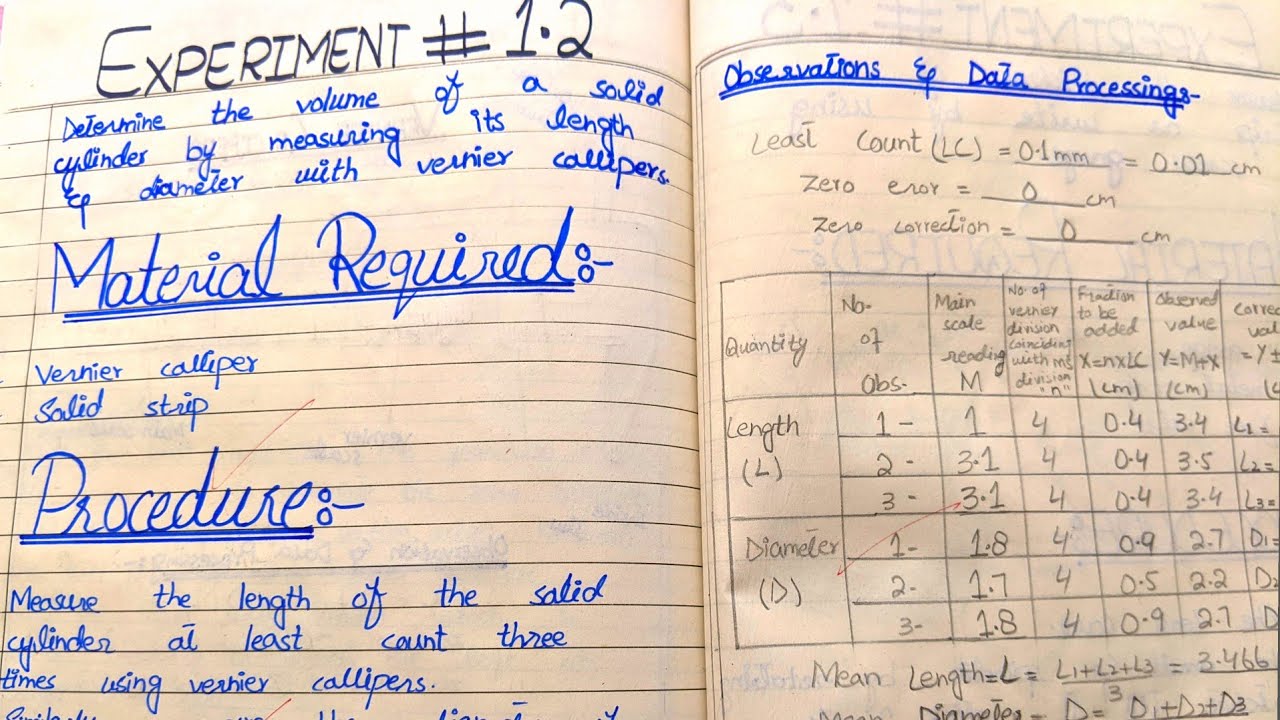 EXPERIMENT # 1.2
Determine the volume of a solid
cylinder by measuring its length
& diameter with vernier callipers.
Material Required:-
Vernier calliper
Solid strip
Procedure:-
Measure the length of the solid
cylinder at least count three
times using vernier callipers.
Observations & Data Processings-
Least Count (LC) = 0.1mm = 0.01 cm
Zero eror = 0 cm
Zero correction = 0 cm
Quantity
No. of Obs.
Main scale reading M
No. of vernier division coincident with ms division "n"
Fraction to be added X=nxLC (cm)
Observed value Y=M+X (cm)
Length (L)
1- 1 4 0.4 3.4 L1=
2- 3.1 4 0.4 3.5 L2=
3- 3.1 4 0.4 3.4 L3=
Diameter (D)
1- 1.8 4 0.9 2.7 D1=
2- 1.7 4 0.5 2.2 D
3- 1.8 4 0.9 2.7 D
Mean Length=L= L1+L2+L3/3 = 3.466
Diameter= D= D1+D2+D3